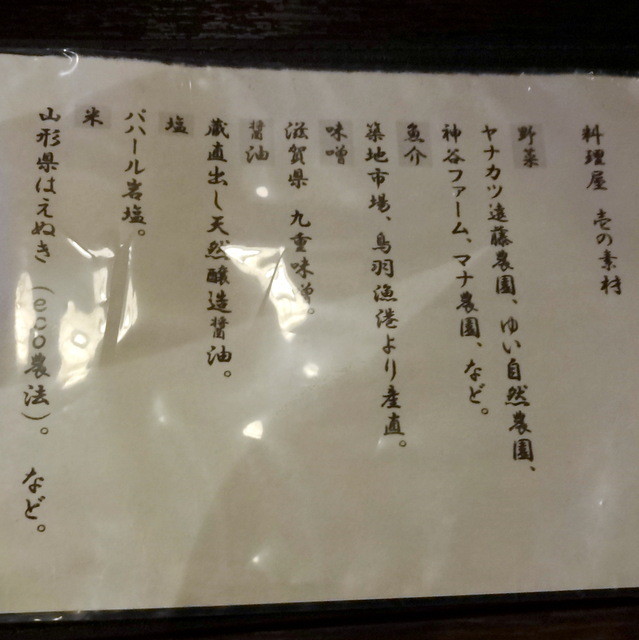 料理屋 壱の素材
野菜
ヤナカツ遠藤農園、ゆい自然農園、
神谷ファーム、マナ農園、など。
魚介
築地市場、鳥羽漁港より産直。
味噌
滋賀県 九重味噌。
醤油
蔵直出し天然醸造醤油。
塩
バハール岩塩。
米
山形県はえぬき (eco農法)。 など。